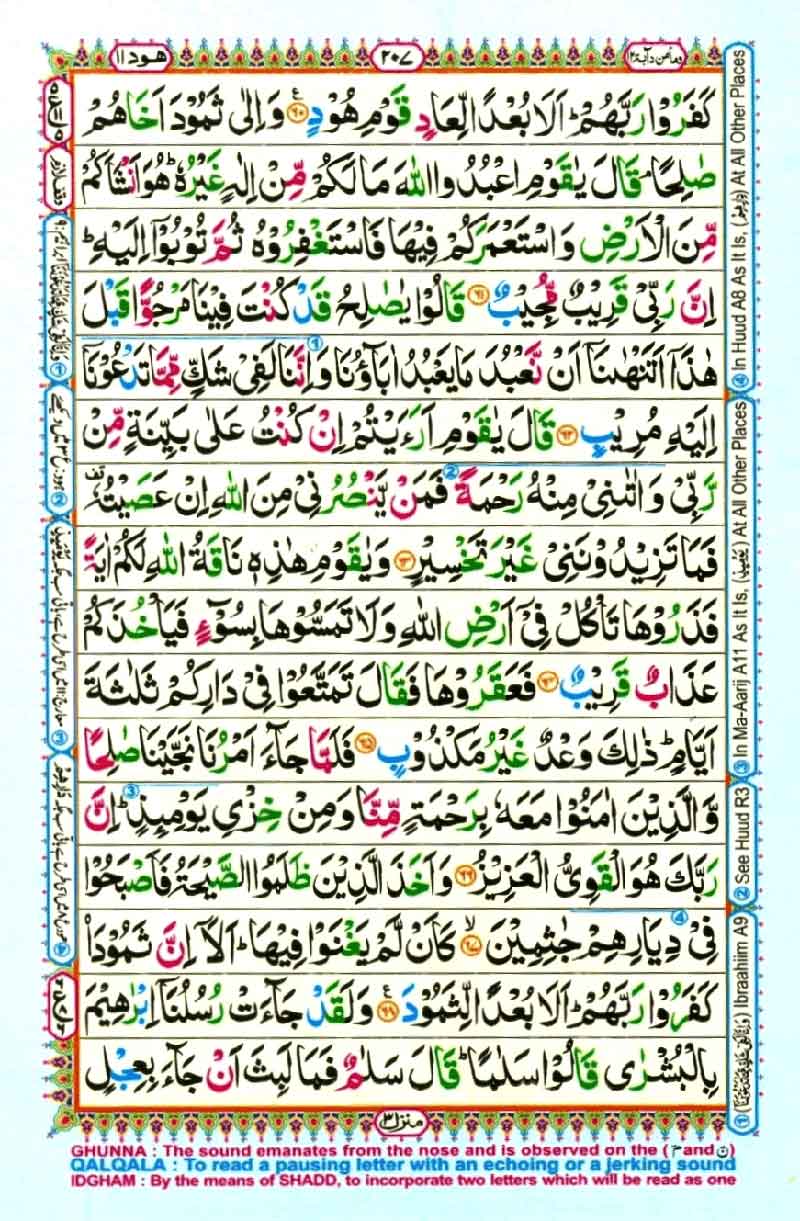 هود ۱۱
۲۰۷
ومامن دآبة ۱۲
كَفَرُوْا رَبَّهُمْ ؕ اَلَا بُعْدًا لِّعَادٍ قَوْمِ هُوْدٍ ۟﴿۶۰﴾ وَاِلٰى ثَمُوْدَ اَخَاهُمْ
صٰلِحًا ۘ قَالَ يٰقَوْمِ اعْبُدُوا اللّٰهَ مَا لَكُمْ مِّنْ اِلٰهٍ غَيْرُهٗ ؕ هُوَ اَنْشَاَكُمْ
مِّنَ الْاَرْضِ وَاسْتَعْمَرَكُمْ فِيْهَا فَاسْتَغْفِرُوْهُ ثُمَّ تُوْبُوْۤا اِلَيْهِ ؕ
اِنَّ رَبِّىْ قَرِيْبٌ مُّجِيْبٌ ﴿۶۱﴾ قَالُوْا يٰصٰلِحُ قَدْ كُنْتَ فِيْنَا مَرْجُوًّا قَبْلَ
هٰذَاۤ اَتَنْهٰىنَاۤ اَنْ نَّعْبُدَ مَا يَعْبُدُ اٰبَآؤُنَا وَاِنَّنَا لَفِىْ شَكٍّ مِّمَّا تَدْعُوْنَاۤ
اِلَيْهِ مُرِيْبٍ ﴿۶۲﴾ قَالَ يٰقَوْمِ اَرَءَيْتُمْ اِنْ كُنْتُ عَلٰى بَيِّنَةٍ مِّنْ
رَّبِّىْ وَاٰتٰىنِىْ مِنْهُ رَحْمَةً فَمَنْ يَّنْصُرُنِىْ مِنَ اللّٰهِ اِنْ عَصَيْتُهٗ ۟
فَمَا تَزِيْدُوْنَنِىْ غَيْرَ تَخْسِيْرٍ ﴿۶۳﴾ وَيٰقَوْمِ هٰذِهٖ نَاقَةُ اللّٰهِ لَكُمْ اٰيَةً
فَذَرُوْهَا تَاْكُلْ فِىْۤ اَرْضِ اللّٰهِ وَلَا تَمَسُّوْهَا بِسُوْٓءٍ فَيَاْخُذَكُمْ
عَذَابٌ قَرِيْبٌ ﴿۶۴﴾ فَعَقَرُوْهَا فَقَالَ تَمَتَّعُوْا فِىْ دَارِكُمْ ثَلٰثَةَ
اَيَّامٍ ؕ ذٰلِكَ وَعْدٌ غَيْرُ مَكْذُوْبٍ ﴿۶۵﴾ فَلَمَّا جَآءَ اَمْرُنَا نَجَّيْنَا صٰلِحًا
وَّالَّذِيْنَ اٰمَنُوْا مَعَهٗ بِرَحْمَةٍ مِّنَّا وَمِنْ خِزْىِ يَوْمِئِذٍ ؕ اِنَّ
رَبَّكَ هُوَ الْقَوِىُّ الْعَزِيْزُ ﴿۶۶﴾ وَاَخَذَ الَّذِيْنَ ظَلَمُوا الصَّيْحَةُ فَاَصْبَحُوْا
فِىْ دِيَارِهِمْ جٰثِمِيْنَ ۙ﴿۶۷﴾ كَاَنْ لَّمْ يَغْنَوْا فِيْهَا ؕ اَلَاۤ اِنَّ ثَمُوْدَا۟
كَفَرُوْا رَبَّهُمْ ؕ اَلَا بُعْدًا لِّثَمُوْدَ ﴿۶۸﴾ وَلَقَدْ جَآءَتْ رُسُلُنَاۤ اِبْرٰهِيْمَ
بِالْبُشْرٰى قَالُوْا سَلٰمًا ؕ قَالَ سَلٰمٌ فَمَا لَبِثَ اَنْ جَآءَ بِعِجْلٍ
منزل ۳
① Ibraahiim A9
② See Huud R3
③ In Ma-Aarij A11 As It Is, At All Other Places
④ In Huud A8 As It Is, At All Other Places
GHUNNA : The sound emanates from the nose and is observed on the (م and ن)
QALQALA : To read a pausing letter with an echoing or a jerking sound
IDGHAM : By the means of SHADD, to incorporate two letters which will be read as one